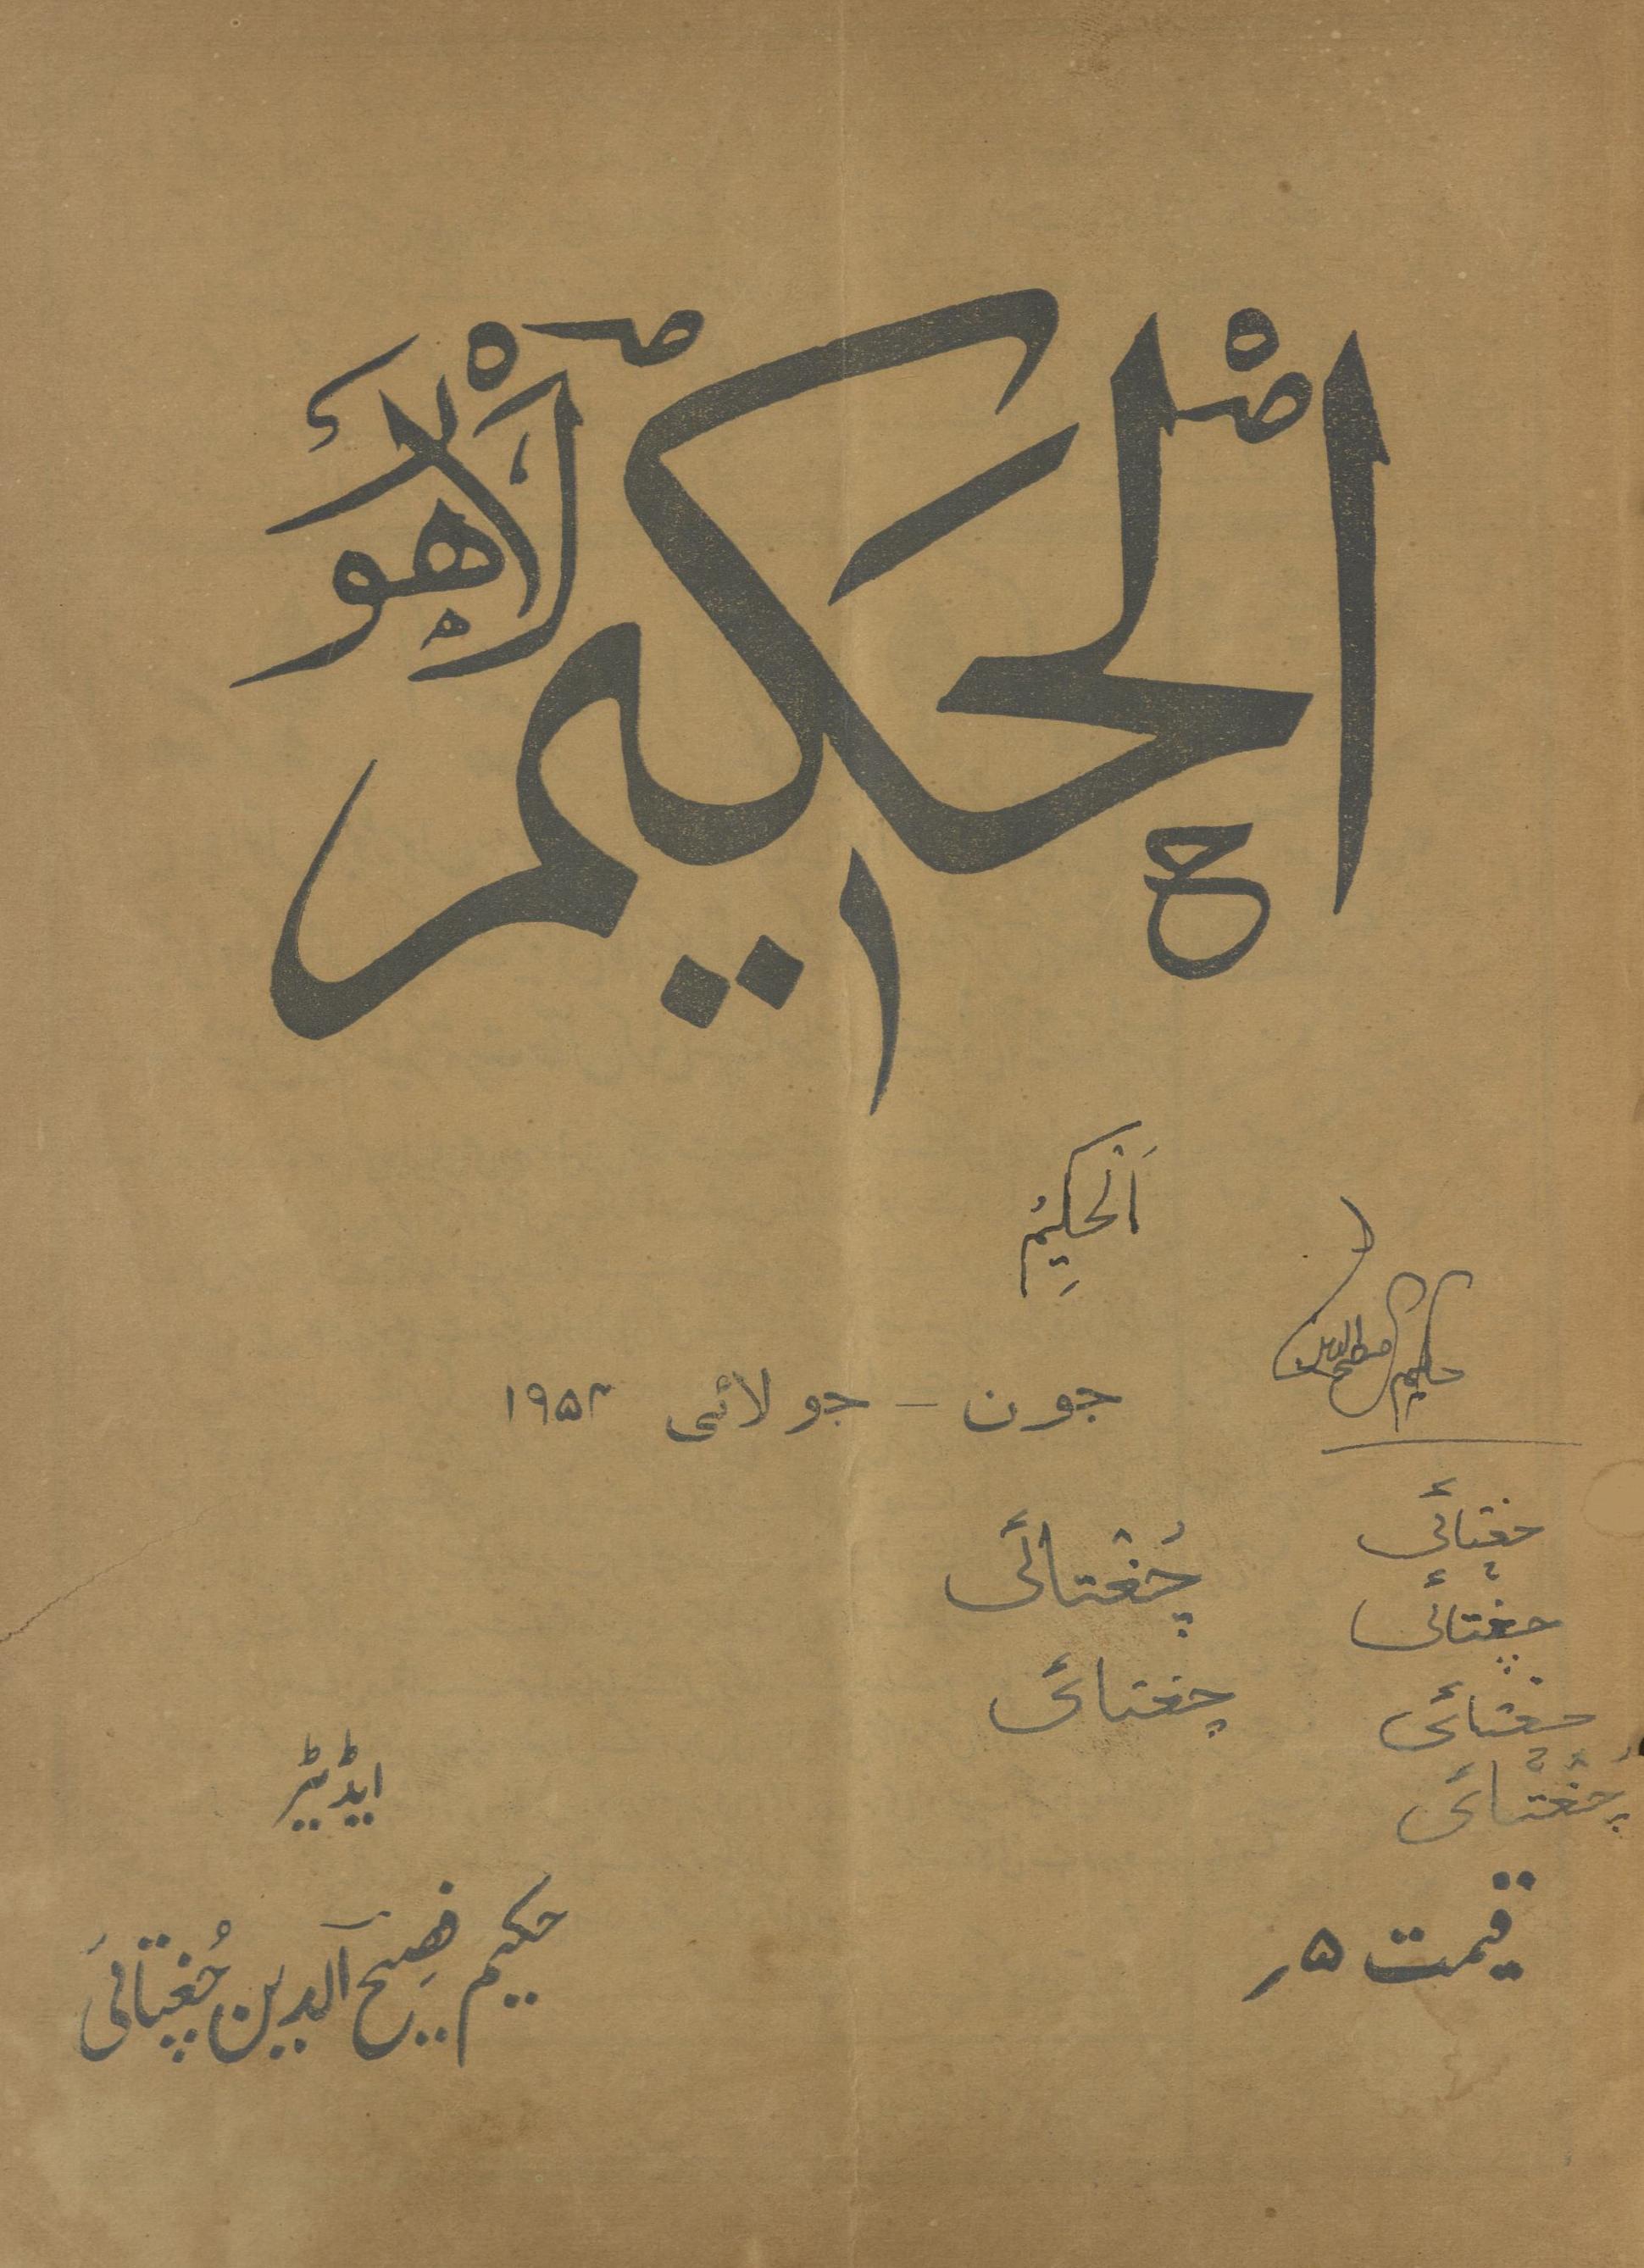 الحکیم لاہور
اَلْحکِیمُ
حکیم
جون - جولائی ۱۹۵۴
چغتائی
چُغْتائی
چغتائی
چغتائی
چغتائی
چُغْتائی
ایڈیٹر
قیمت ۵ر
حکیم فصِیح الدین چُغتائی